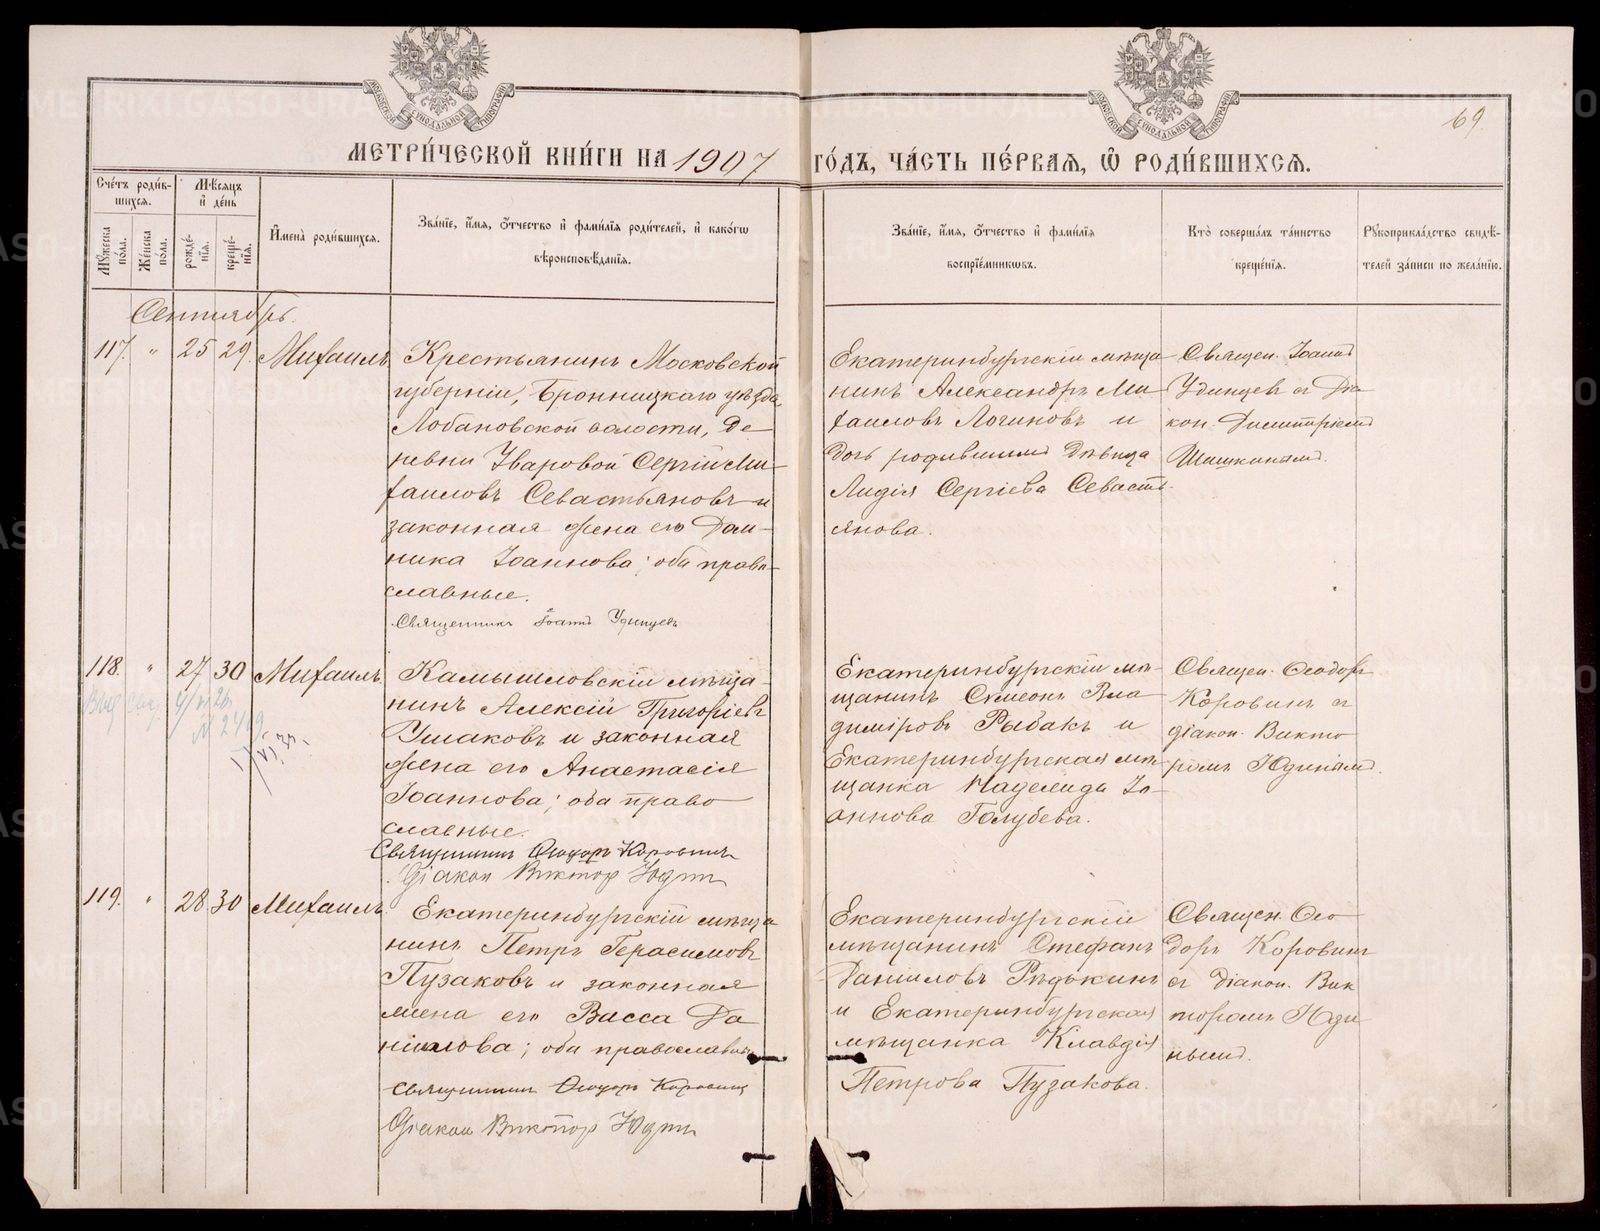 МОСКОВСКОЙ СѴНОДАЛЬНОЙ ТИПОГРАФІИ
МОСКОВСКОЙ СѴНОДАЛЬНОЙ ТИПОГРАФІИ
69
МЕТРИ́ЧЕСКОЙ КНИ́ГИ НА 1907 ГО́ДЪ, ЧА́СТЬ ПЕ́РВАЯ, Ѽ РОДИ́ВШИХСЯ.
Сче́тъ роди́в-
шихся.
Мѣ́сяцъ
и҆ де́нь
Мꙋ́жеска по́ла.
Же́нска по́ла.
рожде́-
нїя.
креще́-
нїя.
И҆мена̀ роди́вшихся.
Зва́нїе, и҆́мя, ѻ҆́тчество и҆ фами́лїя роди́телей, и҆ како́гѡ
вѣроисповѣ́данїя.
Зва́нїе, и҆́мя, ѻ҆́тчество и҆ фами́лїя
воспрїе́мникѡвъ.
Кто̀ соверша́лъ та́инство
креще́нїя.
Рꙋкоприкла́дство свидѣ́-
телей за́писи по жела́нїю.
Сентябрь.
117. " 25 29. Михаилъ.
Крестьянинъ Московской
губерніи, Бронницкаго уѣзда,
Лобановской волости, де-
ревни Уваровой Сергій Ми-
хаиловъ Севастьяновъ и
законная жена его Дом-
ника Іоаннова; оба право-
славные.
Священникъ Іоаннъ Удинцевъ
Екатеринбургскій мѣща-
нинъ Александръ Ми-
хаиловъ Логиновъ и
дочь родившимъ дѣвица
Лидія Сергіева Севасть-
янова.
Священ. Іоаннъ
Удинцевъ съ діа-
кон. Димитріемъ
Шишкинымъ.
118. " 27 30 Михаилъ.
Камышловскій мѣща-
нинъ Алексій Григоріевъ
Ушаковъ и законная
жена его Анастасія
Іоаннова; оба право-
славные.
Священникъ Ѳеодоръ Коровинъ
Діакон Виктор Юдин
Екатеринбургскій мѣ-
щанинъ Симеонъ Вла-
диміровъ Рыбакъ и
Екатеринбургская мѣ-
щанка Надежда Іо-
аннова Голубева.
Священ. Ѳеодоръ
Коровинъ съ
діакон. Викто-
ромъ Юдинымъ.
119. " 28 30 Михаилъ.
Екатеринбургскій мѣща-
нинъ Петръ Герасимовъ
Пузаковъ и законная
жена его Васса Да-
ніилова; оба православные
Священникъ Ѳеодоръ Коровинъ
Діакон Виктор Юдин
Екатеринбургскій
мѣщанинъ Стефанъ
Данииловъ Рѣдькинъ
и Екатеринбургская
мѣщанка Клавдія
Петрова Пузакова.
Священ. Ѳео-
доръ Коровинъ
съ діакон. Вик-
торомъ Юди-
нымъ.
METRIKI.GASO-URAL.RU